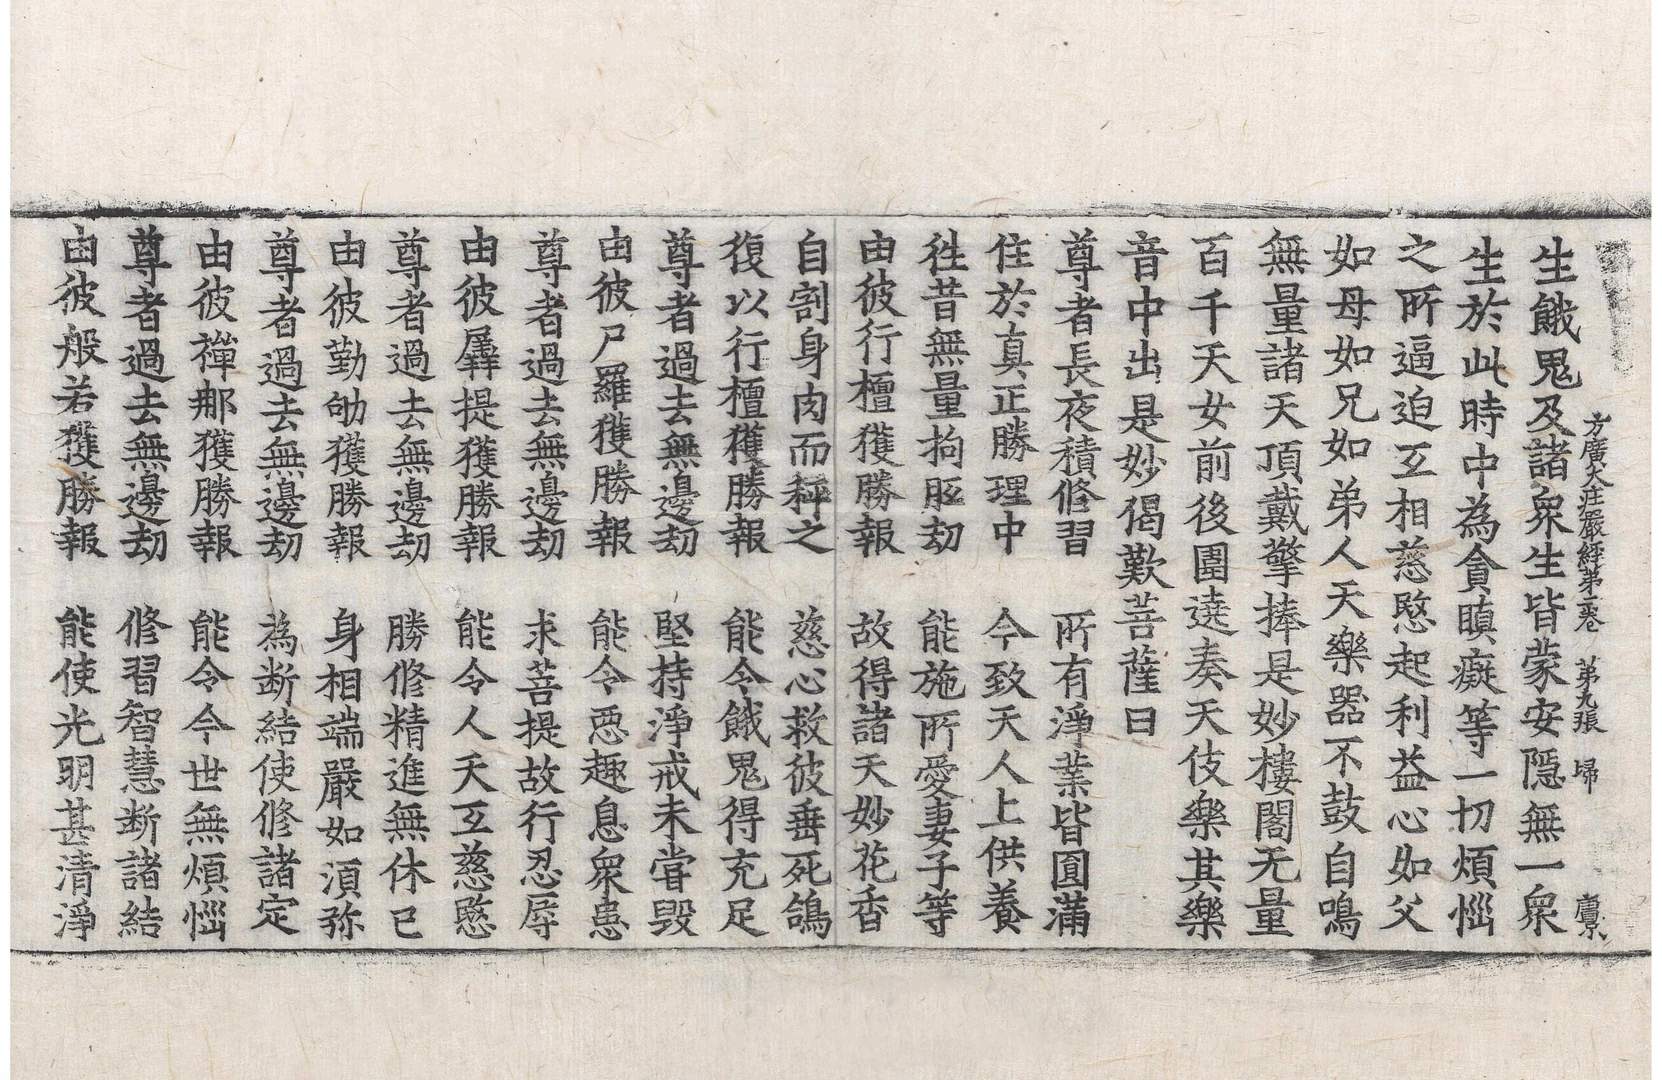 方廣大莊嚴經第二卷 第九張 㱕 賣京
生餓鬼及諸衆生皆蒙安隱無一衆
生於此時中為貪瞋癡等一切煩惱
之所逼迫互相慈愍起利益心如父
如母如兄如弟人天樂器不鼓自鳴
無量諸天頂戴擎捧是妙樓閣无量
百千天女前後圍遶奏天伎樂其樂
音中出是妙偈歎菩薩曰
尊者長夜積修習 所有淨業皆圓滿
住於真正勝理中 今致天人上供養
徃昔無量拘胝劫 能施所愛妻子等
由彼行檀獲勝報 故得諸天妙花香
自割身肉而秤之 慈心救彼垂死鴿
復以行檀獲勝報 能令餓鬼得充足
尊者過去無邊劫 堅持淨戒未甞毀
由彼尸羅獲勝報 能令惡趣息衆患
尊者過去無邊劫 求菩提故行忍辱
由彼羼提獲勝報 能令人天互慈愍
尊者過去無邊劫 勝修精進無休已
由彼勤劬獲勝報 身相端嚴如湏弥
尊者過去無邊劫 為断結使修諸定
由彼禪那獲勝報 能令今世無煩惱
尊者過去無邊劫 修習智慧断諸結
由彼般若獲勝報 能使光明甚清淨